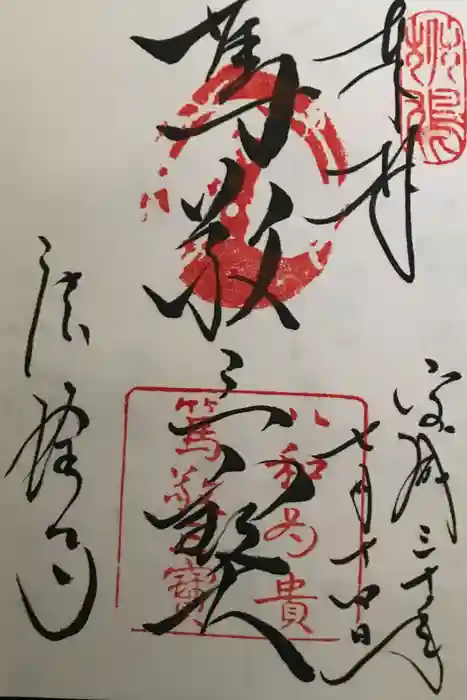 奉拝
平成三十年
七月十四日
篤敬三寶
以和為貴
篤敬三寶
法隆寺